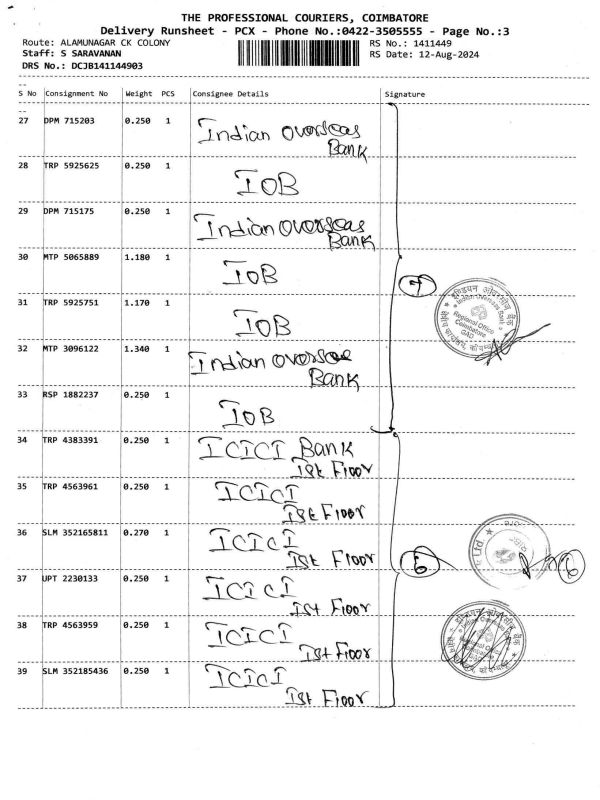 THE PROFESSIONAL COURIERS, COIMBATORE
Delivery Runsheet - PCX - Phone No.:0422-3505555 - Page No.:3
Route: ALAMUNAGAR CK COLONY RS No.: 1411449
Staff: S SARAVANAN RS Date: 12-Aug-2024
DRS No.: DCJB141144903
S No Consignment No Weight PCS Consignee Details Signature
27 DPM 715203 0.250 1 Indian Overseas
Bank
28 TRP 5925625 0.250 1 IOB
29 DPM 715175 0.250 1 Indian Overseas
Bank
30 MTP 5065889 1.180 1 IOB
7
इण्डियन ओवरसीज़ बैंक
Indian Overseas Bank
Regional Office
Coimbatore
GAD
31 TRP 5925751 1.170 1 IOB
32 MTP 3096122 1.340 1 Indian Overseas
Bank
33 RSP 1882237 0.250 1 IOB
34 TRP 4383391 0.250 1 ICICI Bank
Ist Floor
35 TRP 4563961 0.250 1 ICICI
Ist Floor
36 SLM 352165811 0.270 1 ICICI
Ist Floor
6 6
37 UPT 2230133 0.250 1 ICICI
Ist Floor
38 TRP 4563959 0.250 1 ICICI
Ist Floor
39 SLM 352185436 0.250 1 ICICI
Ist Floor